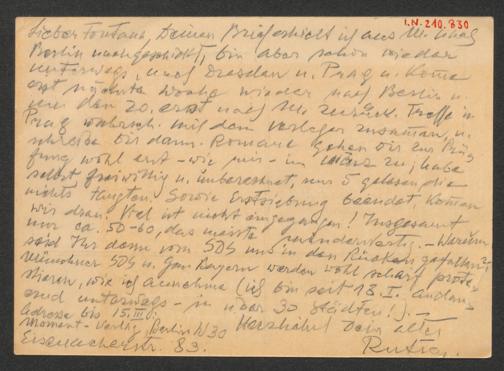 I.N. 210.830
Lieber Fontana, Deinen Brief erhielt ich aus M. nach
Berlin nachgeschickt, bin aber schon wieder
unterwegs, nach Dresden u. Prag u. komme
erst nächste Woche wieder nach Berlin u.
um den 20. erst nach M. zurück. Treffe in
Prag wahrsch. mit dem Verleger zusamen, u.
schreibe Dir dann. Romane gehen Dir zur Prü
fung wohl erst – wie mir – im März zu; habe
selbst freiwillig u. unberechnet, nur 5 gelesen, die
nichts taugten. Sowie Erstsiebung beendet, komen
wir dran. Viel ist nicht eingegangen! Insgesamt
nur ca. 50–60, das meiste minderwertig. – Warum
seid Ihr denn vom SDS uns in den Rücken gefallen?
Münchner SDS u. Gau Bayern werden wohl scharf prote
stieren, wie ich annehme (ich bin seit 18. I. andau
ernd unterwegs – in über 30 Städten!). –
Adresse bis 15. III.: Herzlichst Dein alter
Moment-Verlag, Berlin W 30
Eisenacherstr. 83.